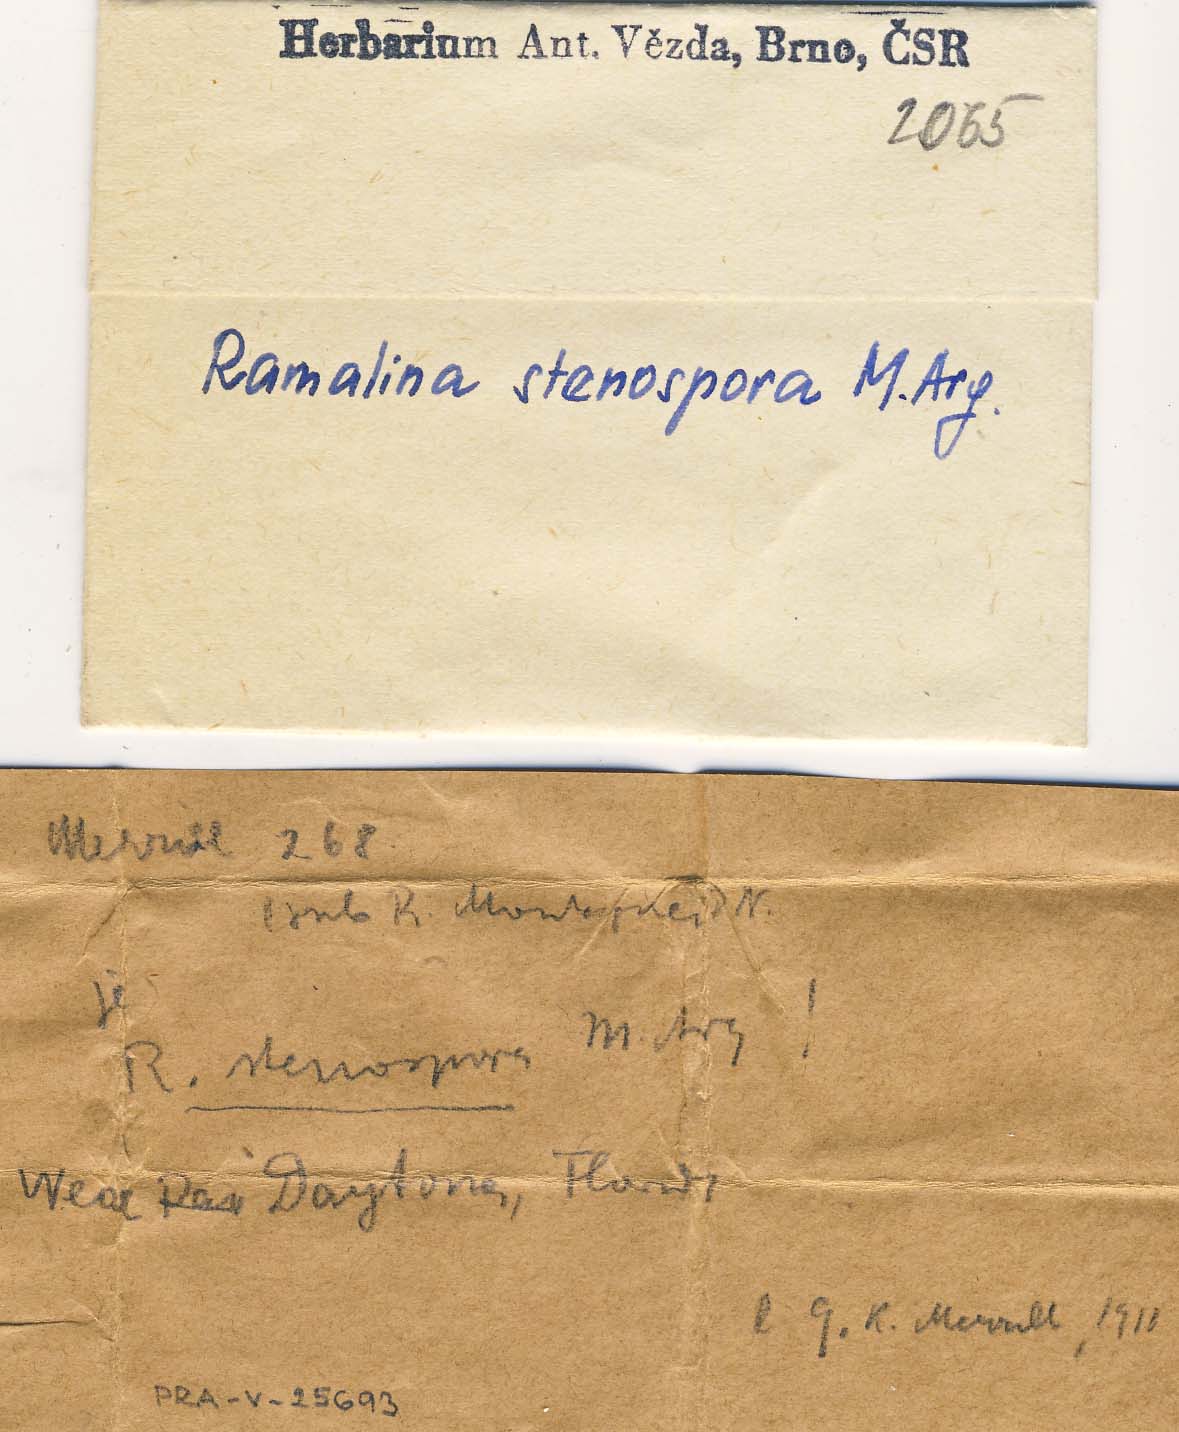 Herbarium Ant. Vězda, Brno, ČSR
2065
Ramalina stenospora M. Arg.
Merrill 268
sub R. Montagnei DN.
je
R. stenospora M. Arg !
Near Daytona, Florida
l G. K. Merrill, 1911
PRA-V-25693